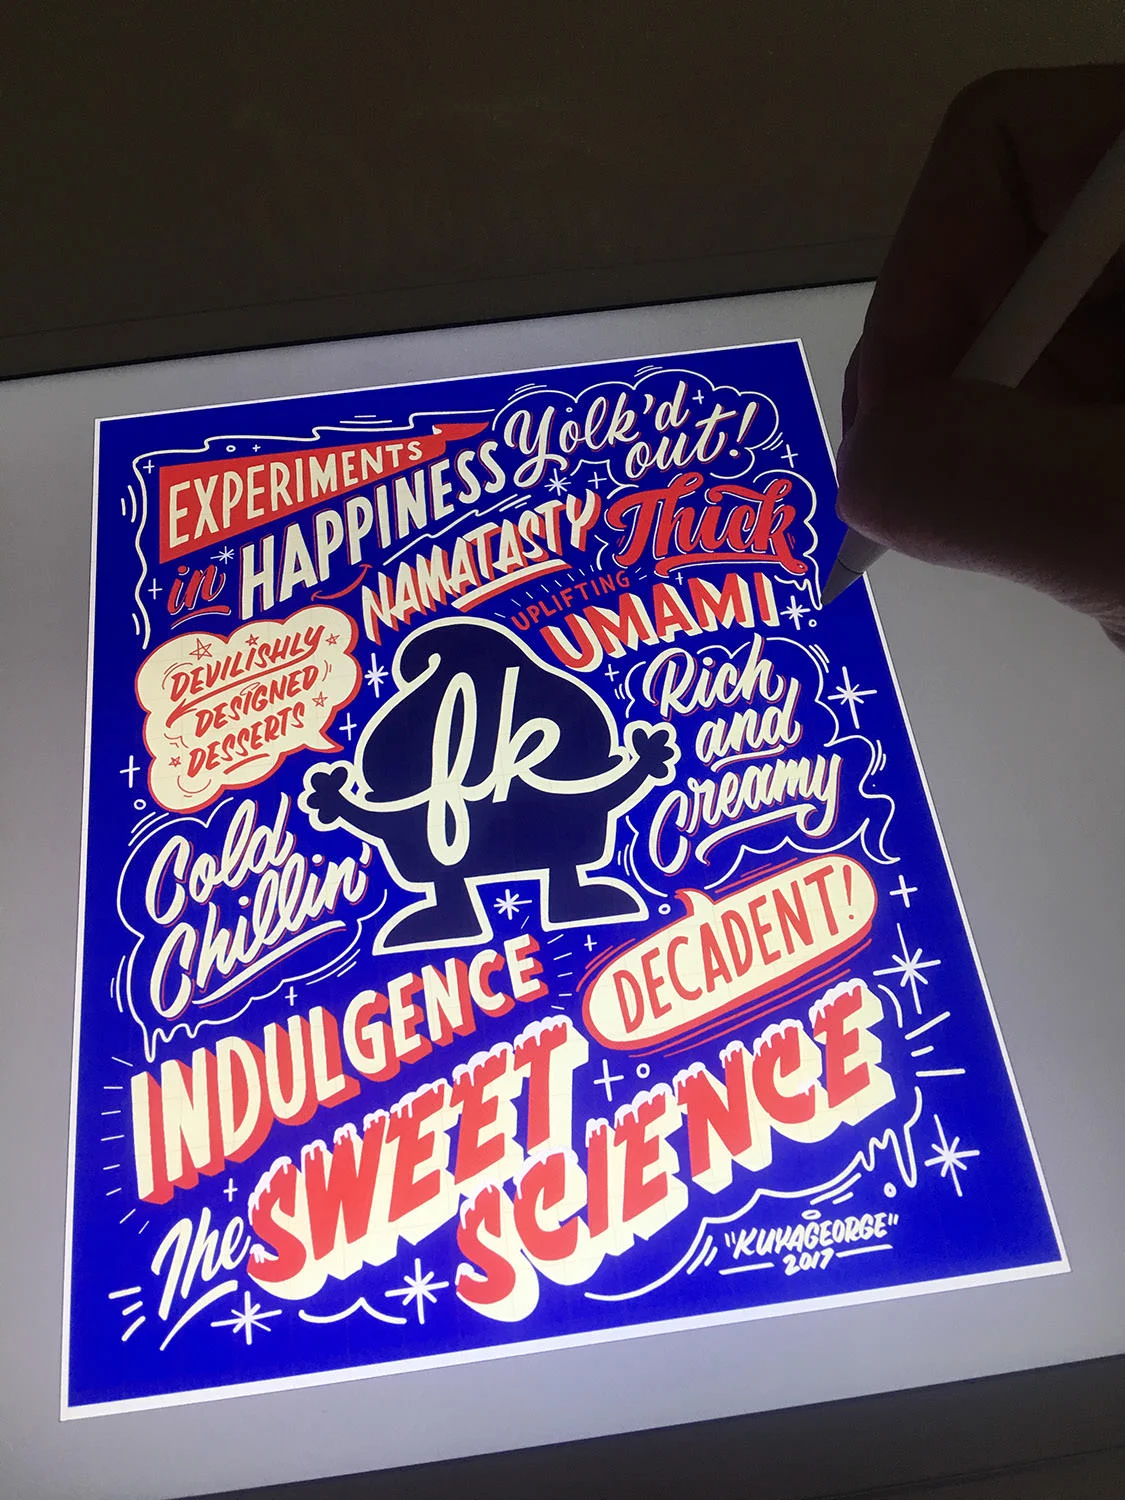 EXPERIMENTS
in HAPPINESS
Yolk'd
out!
NAMATASTY
Thick
UPLIFTING
UMAMI
DEVILISHLY
DESIGNED
DESSERTS
fk
Rich
and
Creamy
Cold
Chillin'
DECADENT!
INDULGENCE
The SWEET
SCIENCE
"KUYAGEORGE"
2017